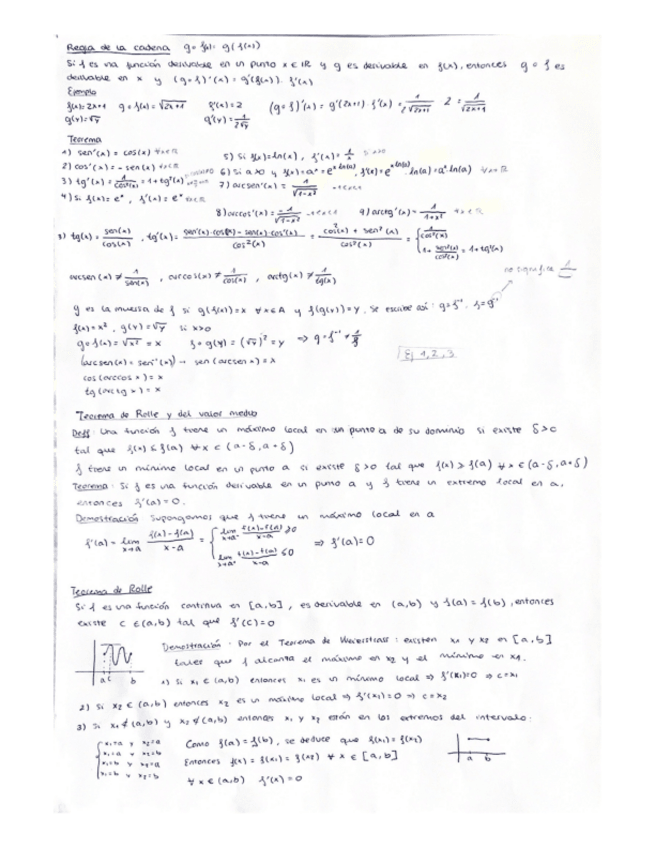 Regla de la cadena g∘f(x) = g(f(x))
Si f es una función derivable en un punto x ∈ ℝ y g es derivable en f(x), entonces g∘f es
derivable en x y (g∘f)'(x) = g'(f(x))·f'(x)
Ejemplo
f(x)=2x+1 g∘f(x)=√(2x+1) f'(x)=2 (g∘f)'(x) = g'(2x+1)·f'(x) = 1/(2√(2x+1)) · 2 = 1/√(2x+1)
g(y)=√y g'(y)=1/(2√y)
Teorema
1) sen'(x) = cos(x) ∀x∈ℝ 5) Si f(x)=ln(x), f'(x)=1/x si x>0
2) cos'(x) = -sen(x) ∀x∈ℝ 6) Si a>0 y f(x)=aˣ=e^(x ln(a)), f'(x)=e^(x ln(a))·ln(a)=aˣ ln(a) ∀x∈ℝ
3) tg'(x) = 1/cos²(x) = 1+tg²(x) 7) arcsen'(x) = 1/√(1-x²) -1<x<1
4) Si f(x)=eˣ, f'(x)=eˣ x∈ℝ
8) arccos'(x) = -1/√(1-x²) -1<x<1 9) arctg'(x) = 1/(1+x²) ∀x∈ℝ
3) tg(x) = sen(x)/cos(x), tg'(x) = (sen'(x)·cos(x) - sen(x)·cos'(x))/cos²(x) = (cos²(x) + sen²(x))/cos²(x) = { 1/cos²(x)
1+ sen²(x)/cos²(x) = 1+tg²(x)
arcsen(x) ≠ 1/sen(x), arccos(x) ≠ 1/cos(x), arctg(x) ≠ 1/tg(x)
no significa 1/
g es la inversa de f si g(f(x))=x ∀x∈A y f(g(y))=y. Se escribe así: g=f⁻¹, f=g⁻¹
f(x)=x², g(y)=√y si x>0
g∘f(x)=√x² = x f∘g(y) = (√y)² = y ⇒ g=f⁻¹ ≠ 1/f
Ej 1, 2, 3
(arcsen(x) = sen⁻¹(x)) → sen(arcsen x) = x
cos(arccos x) = x
tg(arctg x) = x
Teorema de Rolle y del valor medio
Deff: Una función f tiene un máximo local en un punto a de su dominio si existe δ>0
tal que f(x) ≤ f(a) ∀x ∈ (a-δ, a+δ)
f tiene un mínimo local en un punto a si existe δ>0 tal que f(x) ≥ f(a) ∀x∈(a-δ, a+δ)
Teorema: Si f es una función derivable en un punto a y f tiene un extremo local en a,
entonces f'(a)=0.
Demostración Supongamos que f tiene un máximo local en a
f'(a) = lim x→a (f(x)-f(a))/(x-a) = { lim x→a⁻ (f(x)-f(a))/(x-a) ≥0
lim x→a⁺ (f(x)-f(a))/(x-a) ≤0 ⇒ f'(a)=0
Teorema de Rolle
Si f es una función continua en [a,b], es derivable en (a,b) y f(a)=f(b), entonces
existe c ∈(a,b) tal que f'(c)=0
a c b
Demostración · Por el Teorema de Weierstrass: existen x₁ y x₂ en [a,b]
tales que f alcanza el máximo en x₂ y el mínimo en x₁.
1) Si x₁ ∈ (a,b) entonces x₁ es un mínimo local ⇒ f'(x₁)=0 ⇒ c=x₁
2) Si x₂ ∈ (a,b) entonces x₂ es un máximo local ⇒ f'(x₂)=0 ⇒ c=x₂
3) Si x₁ ∉ (a,b) y x₂ ∉ (a,b) entonces x₁ y x₂ están en los extremos del intervalo:
Como f(a)=f(b), se deduce que f(x₁)=f(x₂)
Entonces f(x)=f(x₁)=f(x₂) ∀x∈[a,b]
a b
∀x∈(a,b) f'(x)=0